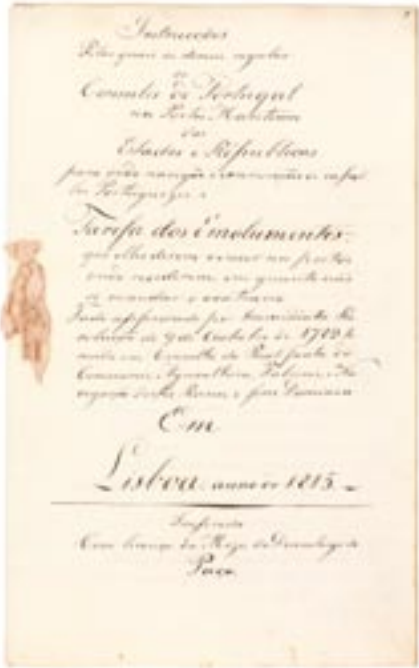 Instrucções
Pelas quaes se devem regular
os
Consules de Portugal
nos Portos Maritimos
das
Estados e Républicas
para onde navegão e commercião os
Portuguezes e
Tarifa dos Emolumentos
que elles devem cobrar nos portos
onde residirem, em quanto não
se mandar o contrario
Tudo approvado por
de 9 de Outubro de 1789
em Consulta da Real Junta do
Commercio, Agricultura, Fabricas, e Na-
vegação destes Reinos, e seus Dominios
Em
Lisboa anno de 1815
Impressa
Com licença da Meza do Desembargo do
Paço